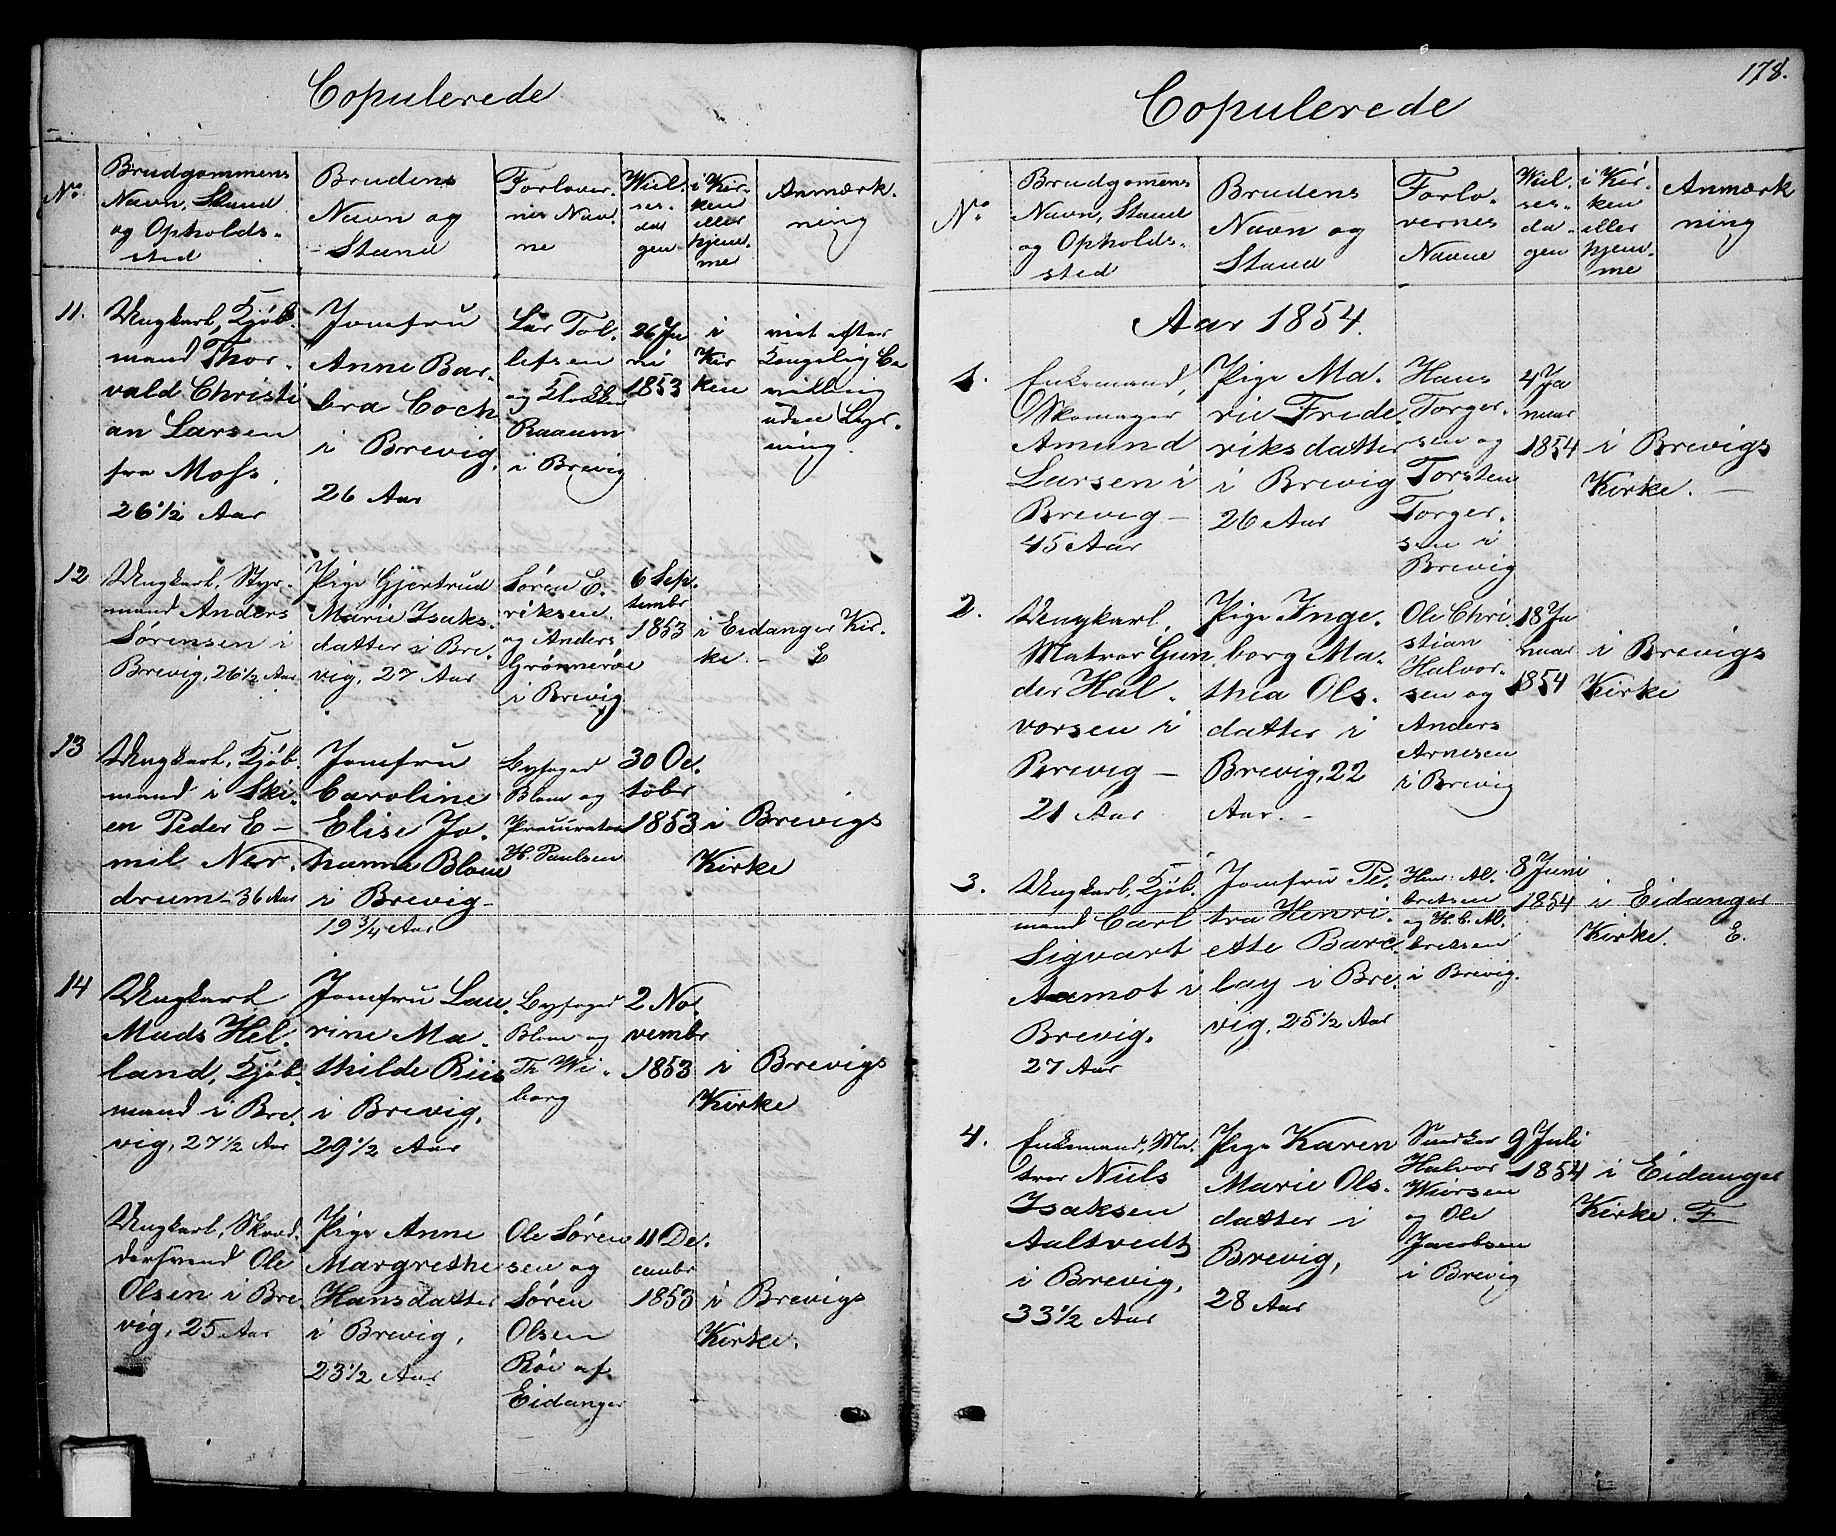 Copulerede
No
Brudgommens
Navn, Stand
og Opholds-
sted
Brudens
Navn og
Stand
Forlover-
nes Nav-
ne
Wiel-
ses-
da-
gen
i Kir-
ken
eller
hjem-
me
Anmærk-
ning
11.
Ungkarl, Kjøb-
mand Thor-
vald Christi
an Larsen
fra Moss.
26 1/2 Aar
Jomfru
Anne Bar-
bra Coch
i Brevig,
26 Aar
Lar Tol-
lefsen
og Klokker
Raaum
i Brevig
26 Ju
ni
1853
i
Kir
ken
viet efter
kongelig Be
villing
uden Lys-
ning.
12
Ungkarl, Styr-
mand Anders
Sørensen i
Brevig, 26 1/2 Aar
Pige Gjertrud
Marie Isaks-
datter i Bre-
vig, 27 Aar
Søren E-
riksen
og Anders
Grønneröe
i Brevig
6 Sep-
tembr
1853
i Eidanger Kir-
ke. - E
13
Ungkarl, Kjøb-
mand i Ski-
en Peder E-
mil Ner-
drum - 36 Aar
Jomfru
Caroline
Elise Jo-
hanna Blom
i Brevig -
19 3/4 Aar
Byfoged
Blom og
Procurator
H. Paulsen
30 Oc-
tobr
1853
i Brevigs
Kirke
14
Ungkarl
Mads Hel-
land, Kjøb-
mand i Bre-
vig, 27 1/2 Aar
Jomfru Lau-
rine Ma-
thilde Riis
i Brevig,
29 1/2 Aar
Byfoged
Blom og
Th Wi-
borg
2 No-
vembr
1853
i Brevigs
Kirke
Ungkarl, Skred-
dersvend Ole
Olsen i Bre
vig, 25 Aar
Pige Anne
Margrethe
Hansdatter
i Brevig,
23 1/2 Aar
Ole Søren
sen og
Søren
Olsen
Röe af
Eidanger
11 De-
cembr
1853
i Brevigs
Kirke.
178.
Copulerede
No
Brudgomens
Navn, Stand
og Opholds-
sted
Brudens
Navn og
Stand
Forlo-
vernes
Navne
Wiel-
ses-
da-
gen
i Kir-
ken
eller
hjem-
me
Anmærk
ning
Aar 1854.
1.
Enkemand
Skomager
Amund
Larsen i
Brevig -
45 Aar
Pige Ma-
rie Frede
riksdatter
i Brevig
26 Aar
Hans
Torger-
sen og
Torsten
Torger-
sen i
Brevig
4 Ja
nuar
1854
i Brevigs
Kirke. -
2.
Ungkarl,
Matros Gun
der Hal-
vorsen i
Brevig -
21 Aar
Pige Inge-
borg Ma-
thea Ols-
datter i
Brevig, 22
Aar. -
Ole Chri
stian
Halvor-
sen og
Anders
Arnesen
i Brevig
18 Ja
nuar
1854
i Brevigs
Kirke
3.
Ungkarl, Kjøb-
mand Carl
Sigvart
Aamot i
Brevig.
27 Aar
Jomfru Pe-
tra Henri-
ette Barc
lay i Bre-
vig, 25 1/2 Aar
Hans Al-
bretsen
og H. C. Al-
bretsen
i Brevig.
8 Juni
1854
i Eidanger
Kirke. E.
4.
Enkemand, Ma-
tros Niels
Isaksen
Aaltvedt
i Brevig,
33 1/2 Aar
Pige Karen
Marie Ols-
datter i
Brevig,
28 Aar
Snedker
Halvor
Wiersen
og Ole
Jacobsen
i Brevig
9 Juli
1854
i Eidanger
Kirke. F